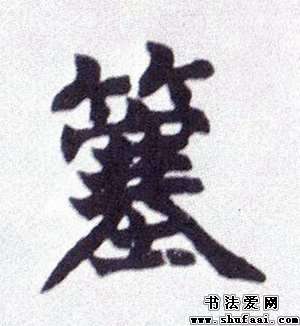 簺
书法爱网
www.shufaai.com